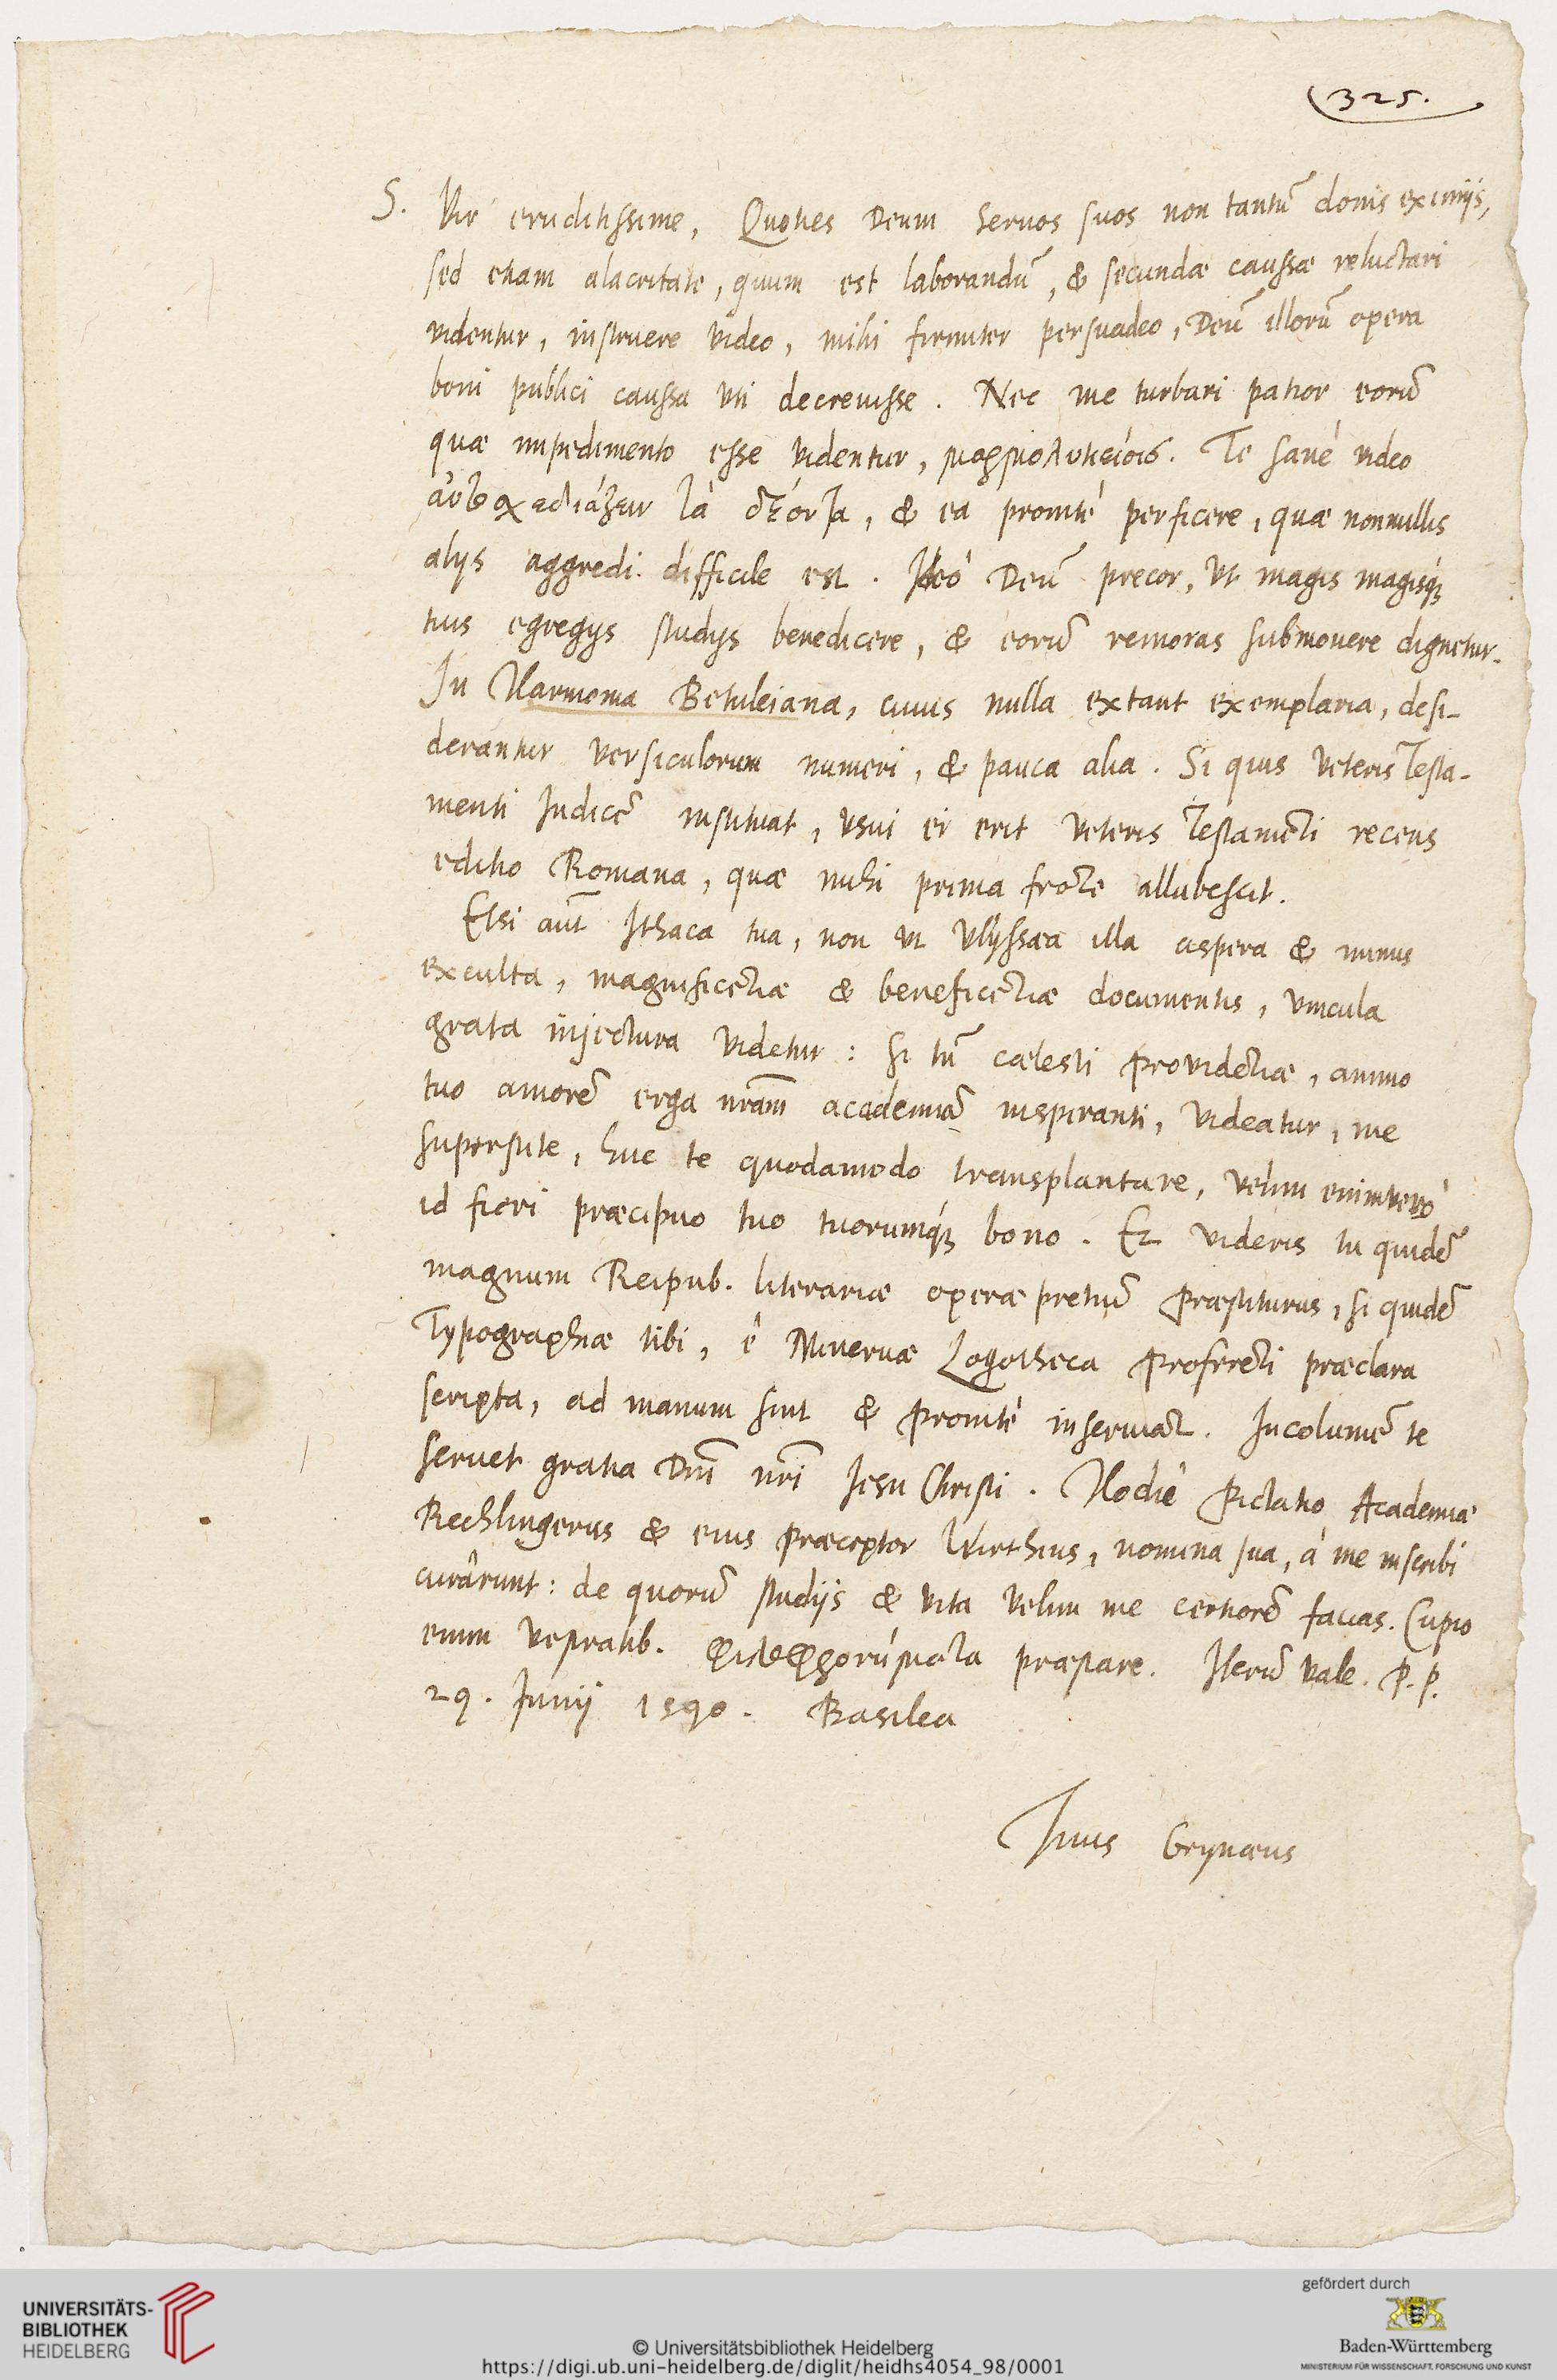 325.
S. Vir eruditissime, Quoties Deum servos suos non tantũ donis eximijs,
sed etiam alacritate, quum est laborandũ, & secundæ caussæ reluctari
videntur, instruere video, mihi firmiter persuadeo, Deũ illorũ opera
boni publici caussa uti decrevisse. Nec me turbari patior eorũ
quæ impedimento esse videntur, Te sanè video
τὰ δέοντα, & ea promtè perficere, quæ nonnullis
alijs aggredi difficile est. Ideò Deũ precor, ut magis magisq́;
tuis egregijs studijs benedicere, & eorũ remoras submovere dignetur.
In Harmonia Betuleiana, cuius nulla extant exemplaria, desi-
derantur versiculorum numeri, & pauca alia. Si quis veteris Testa-
menti Indicẽ instituat, usui ei erit veteris Testamẽti recens
editio Romana, quæ mihi prima frõte allubescit.
Etsi aũt Ithaca tua, non ut Ulyssæa illa aspera & minus
exculta, magnificẽtiæ & beneficẽtiæ documentis, vincula
grata injectura videtur: si tñ cælesti providẽtiæ, animo
tuo amorẽ erga nram̃ academiã inspiranti, videatur, me
superstite, huc te quodamodo transplantare, velim enimverò
id fieri præcipuo tuo tuorumq́; bono. Et videris tu quidẽ
magnum Reipub. literariæ operæ pretiũ præstiturus, si quidẽ
Typographiæ tibi, è Minervæ Logotheca proferẽti præclara
scripta, ad manum sint & promtè inserviãt. Incolumẽ te
servet gratia Dnĩ nrĩ Iesu Christi. Hodiè Academiæ
Rechlingerus & eius præceptor Wirthius, nomina sua, à me inscribi
curârunt: de quorũ studijs & vita velim me certiorẽ facias. Cupio
enim præstare. Iterũ vale. P. P.
29. Junij 1590. Basilea
Tuus Grynæus
UNIVERSITÄTS-
BIBLIOTHEK
HEIDELBERG
© Universitätsbibliothek Heidelberg
https://digi.ub.uni-heidelberg.de/diglit/heidhs4054_98/0001
gefördert durch
Baden-Württemberg
MINISTERIUM FÜR WISSENSCHAFT, FORSCHUNG UND KUNST